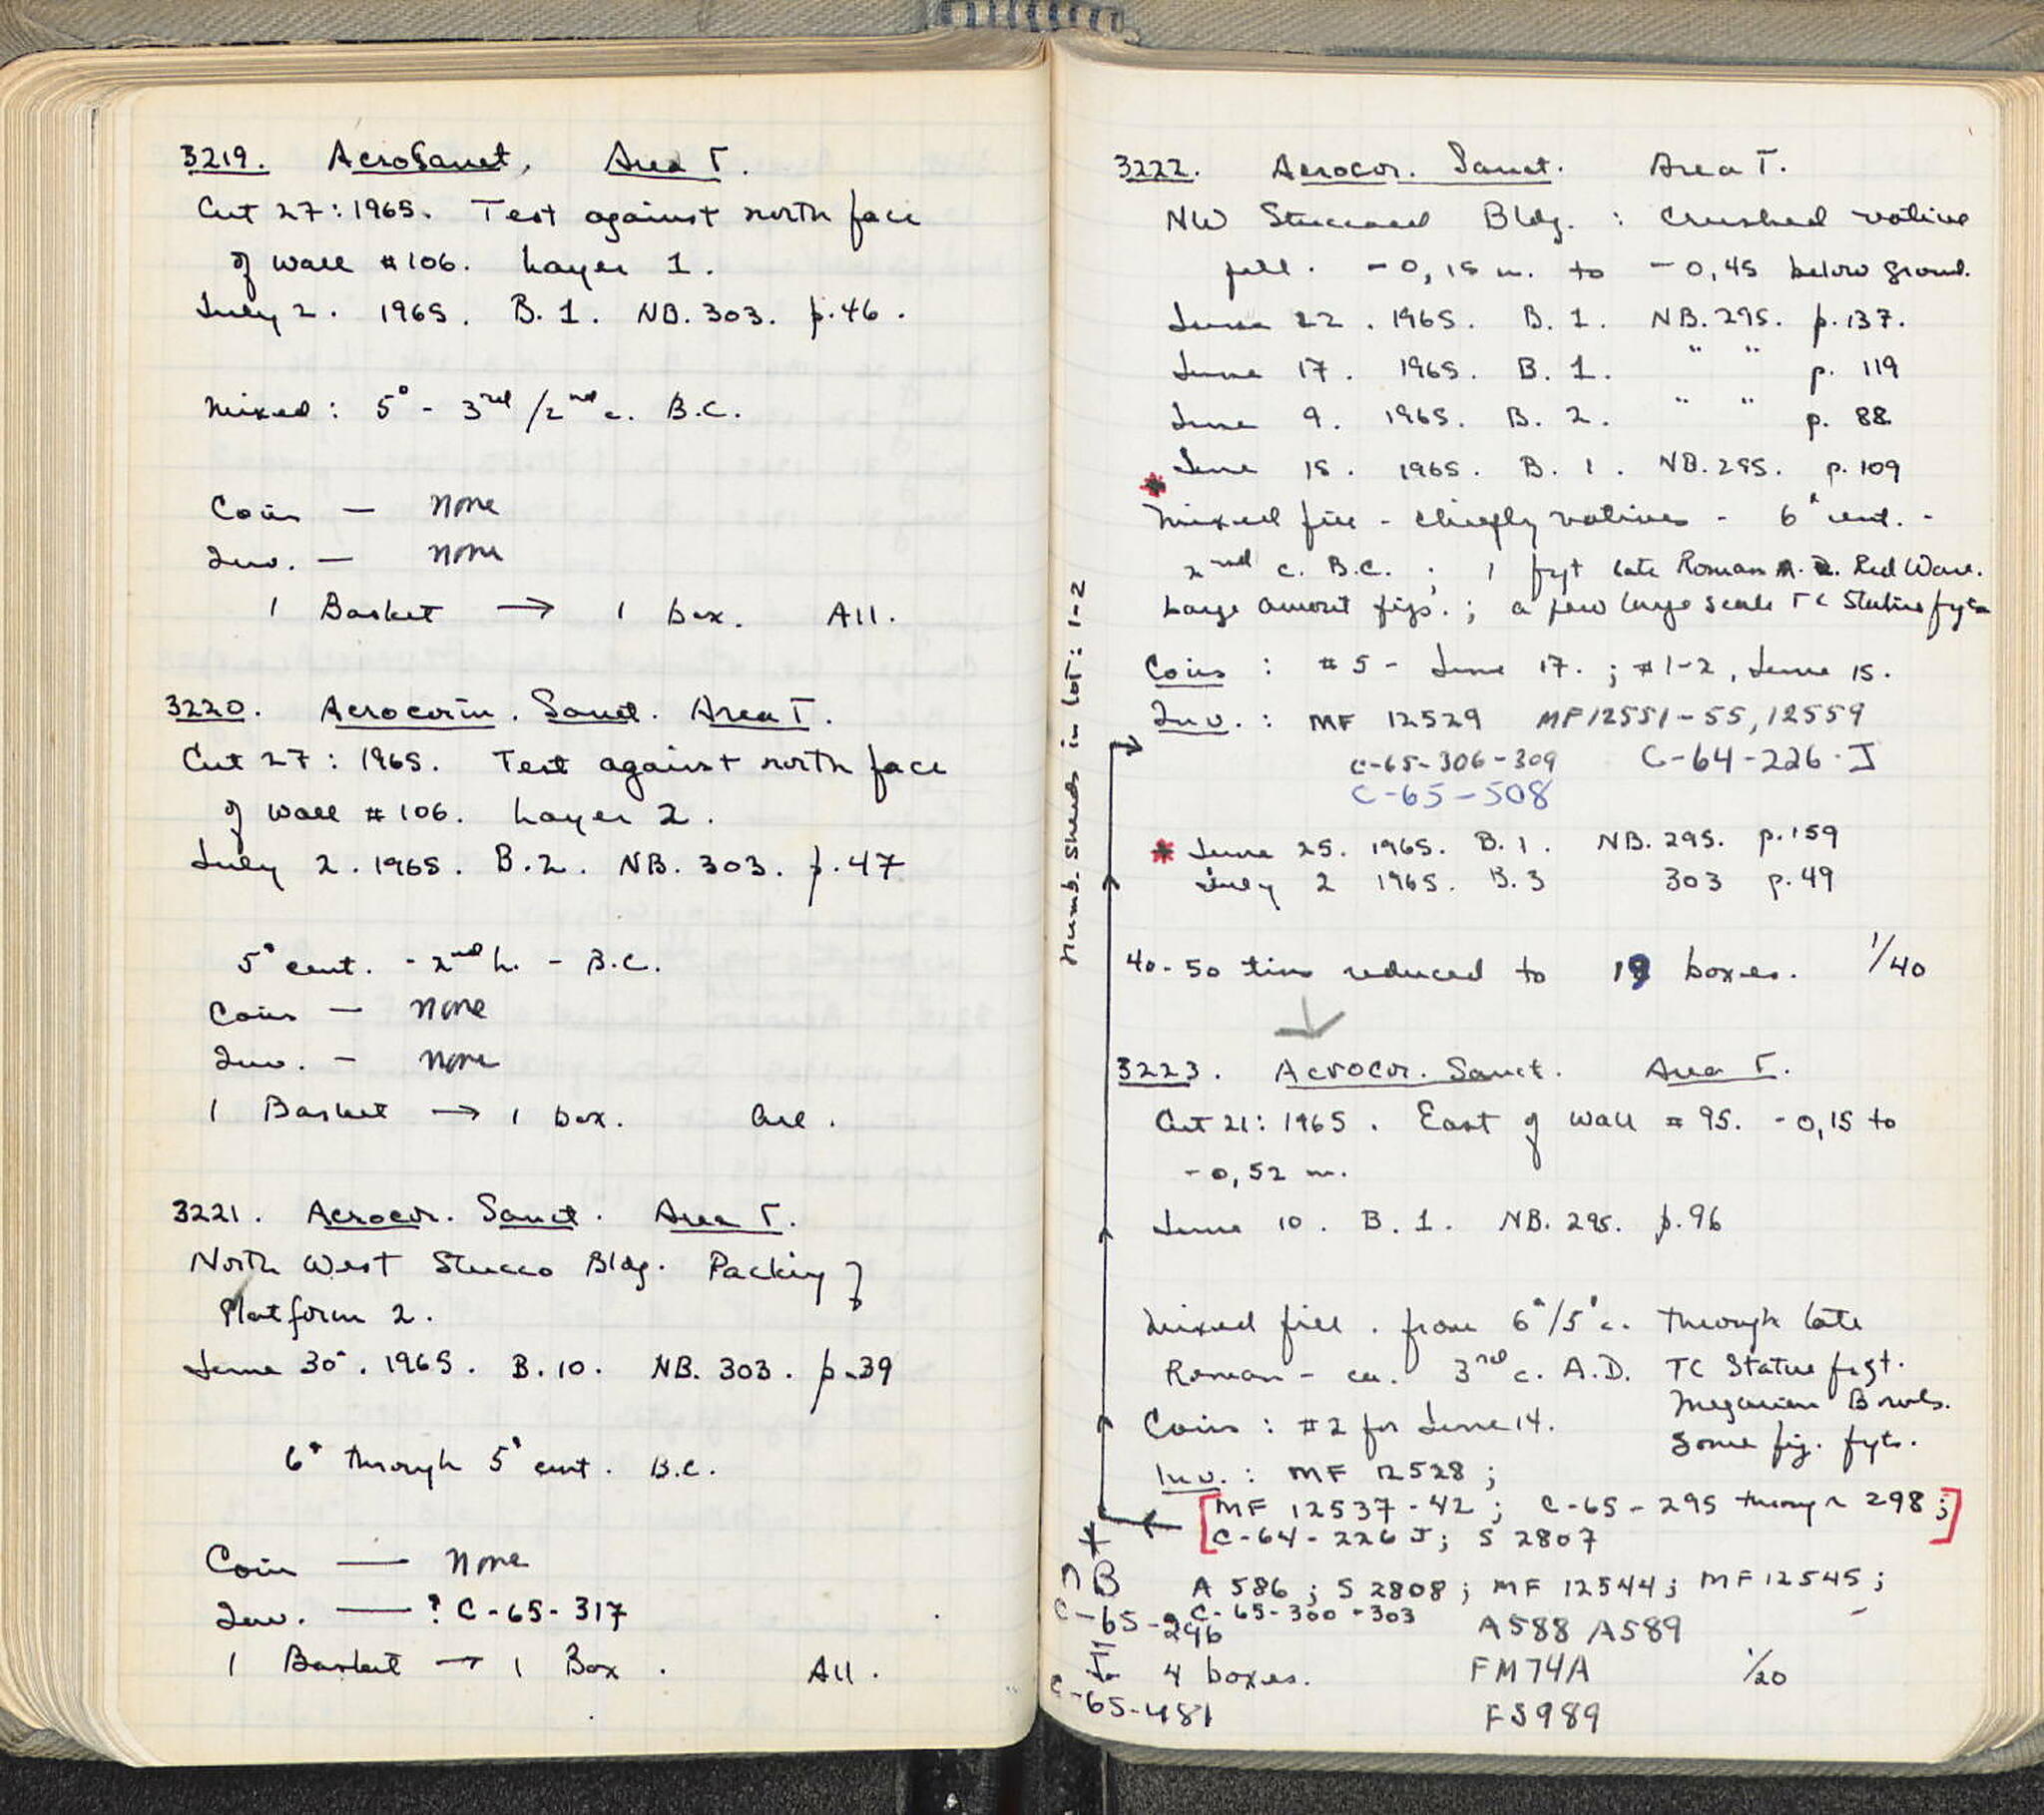 3219. AcroSanct, Area T.
Cut 27: 1965. Test against north face
of wall #106. Layer 1.
July 2. 1965. B. 1. NB. 303. p. 46.
Mixed: 5° - 3rd/2nd c. B.C.
Coins — none
Inv. — none
1 Basket → 1 box. All.
3220. Acrocorin. Sanct. Area T.
Cut 27: 1965. Test against north face
of wall #106. Layer 2.
July 2. 1965. B.2. NB. 303. p. 47
5° cent. - 2nd h. - B.C.
Coins — none
Inv. — none
1 Basket → 1 box. All.
3221. Acrocor. Sanct. Area T.
North West Stucco Bldg. Packing of
Platform 2.
June 30. 1965. B. 10. NB. 303. p. 39
6° through 5° cent. B.C.
Coin — none
Inv. — ? C-65-317
1 Basket → 1 Box. All.
3222. Acrocor. Sanct. Area T.
NW Stuccoed Bldg. : Crushed votive
fill. -0,15 m. to -0,45 below ground.
June 22. 1965. B. 1. NB. 295. p. 137.
June 17. 1965. B. 1. " " p. 119
June 9. 1965. B. 2. " " p. 88
* June 15. 1965. B. 1. NB. 295. p. 109
Mixed fill - chiefly votives - 6° cent. -
2nd c. B.C. ; 1 fgt late Roman Red Ware.
Large amount figs. ; a few large scale TC Statue fgts
Coins : #5 - June 17. ; #1-2, June 15.
Inv. : MF 12529 MF12551-55, 12559
C-65-306-309 C-64-226-J
C-65-508
* June 25. 1965. B. 1. NB. 295. p. 159
July 2 1965. B. 3 303 p. 49
40-50 tins reduced to 19 boxes. 1/40
Numb. sherds in lot: 1-2
3223. Acrocor. Sanct. Area T.
Cut 21: 1965. East of wall #95. -0,15 to
-0,52 m.
June 10. B. 1. NB. 295. p. 96
Mixed fill. from 6°/5° c. through late
Roman - ca. 3rd c. A.D. TC Statue fgt.
Megarian Bowls.
Coins : #2 for June 14. Some fig. fgts.
Inv. : MF 12528 ;
[MF 12537-42 ; C-65-295 through 298 ;
C-64-226 J ; S 2807]
A 586 ; S 2808 ; MF 12544 ; MF 12545 ;
C-65-300-303 A588 A589
NB
C-65-296
=
C-65-481
4 boxes. FM74A 1/20
FS989